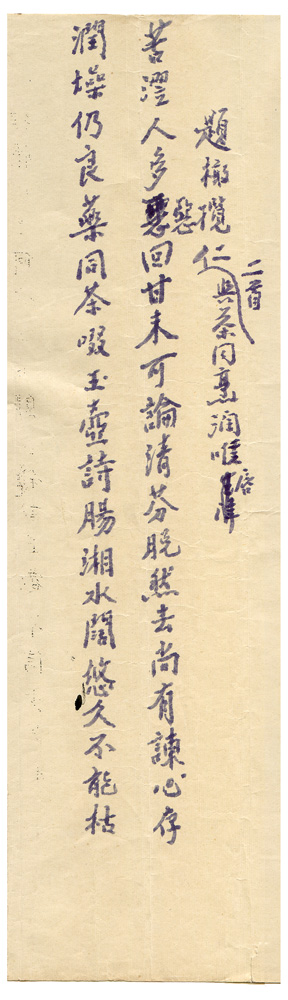 題橄欖仁二首與茶同烹潤喉唇
苦澀人多惡回甘未可論清芬脫然去尚有諫心存
潤燥仍良藥同茶啜玉壺詩腸湘水闊悠久不能枯